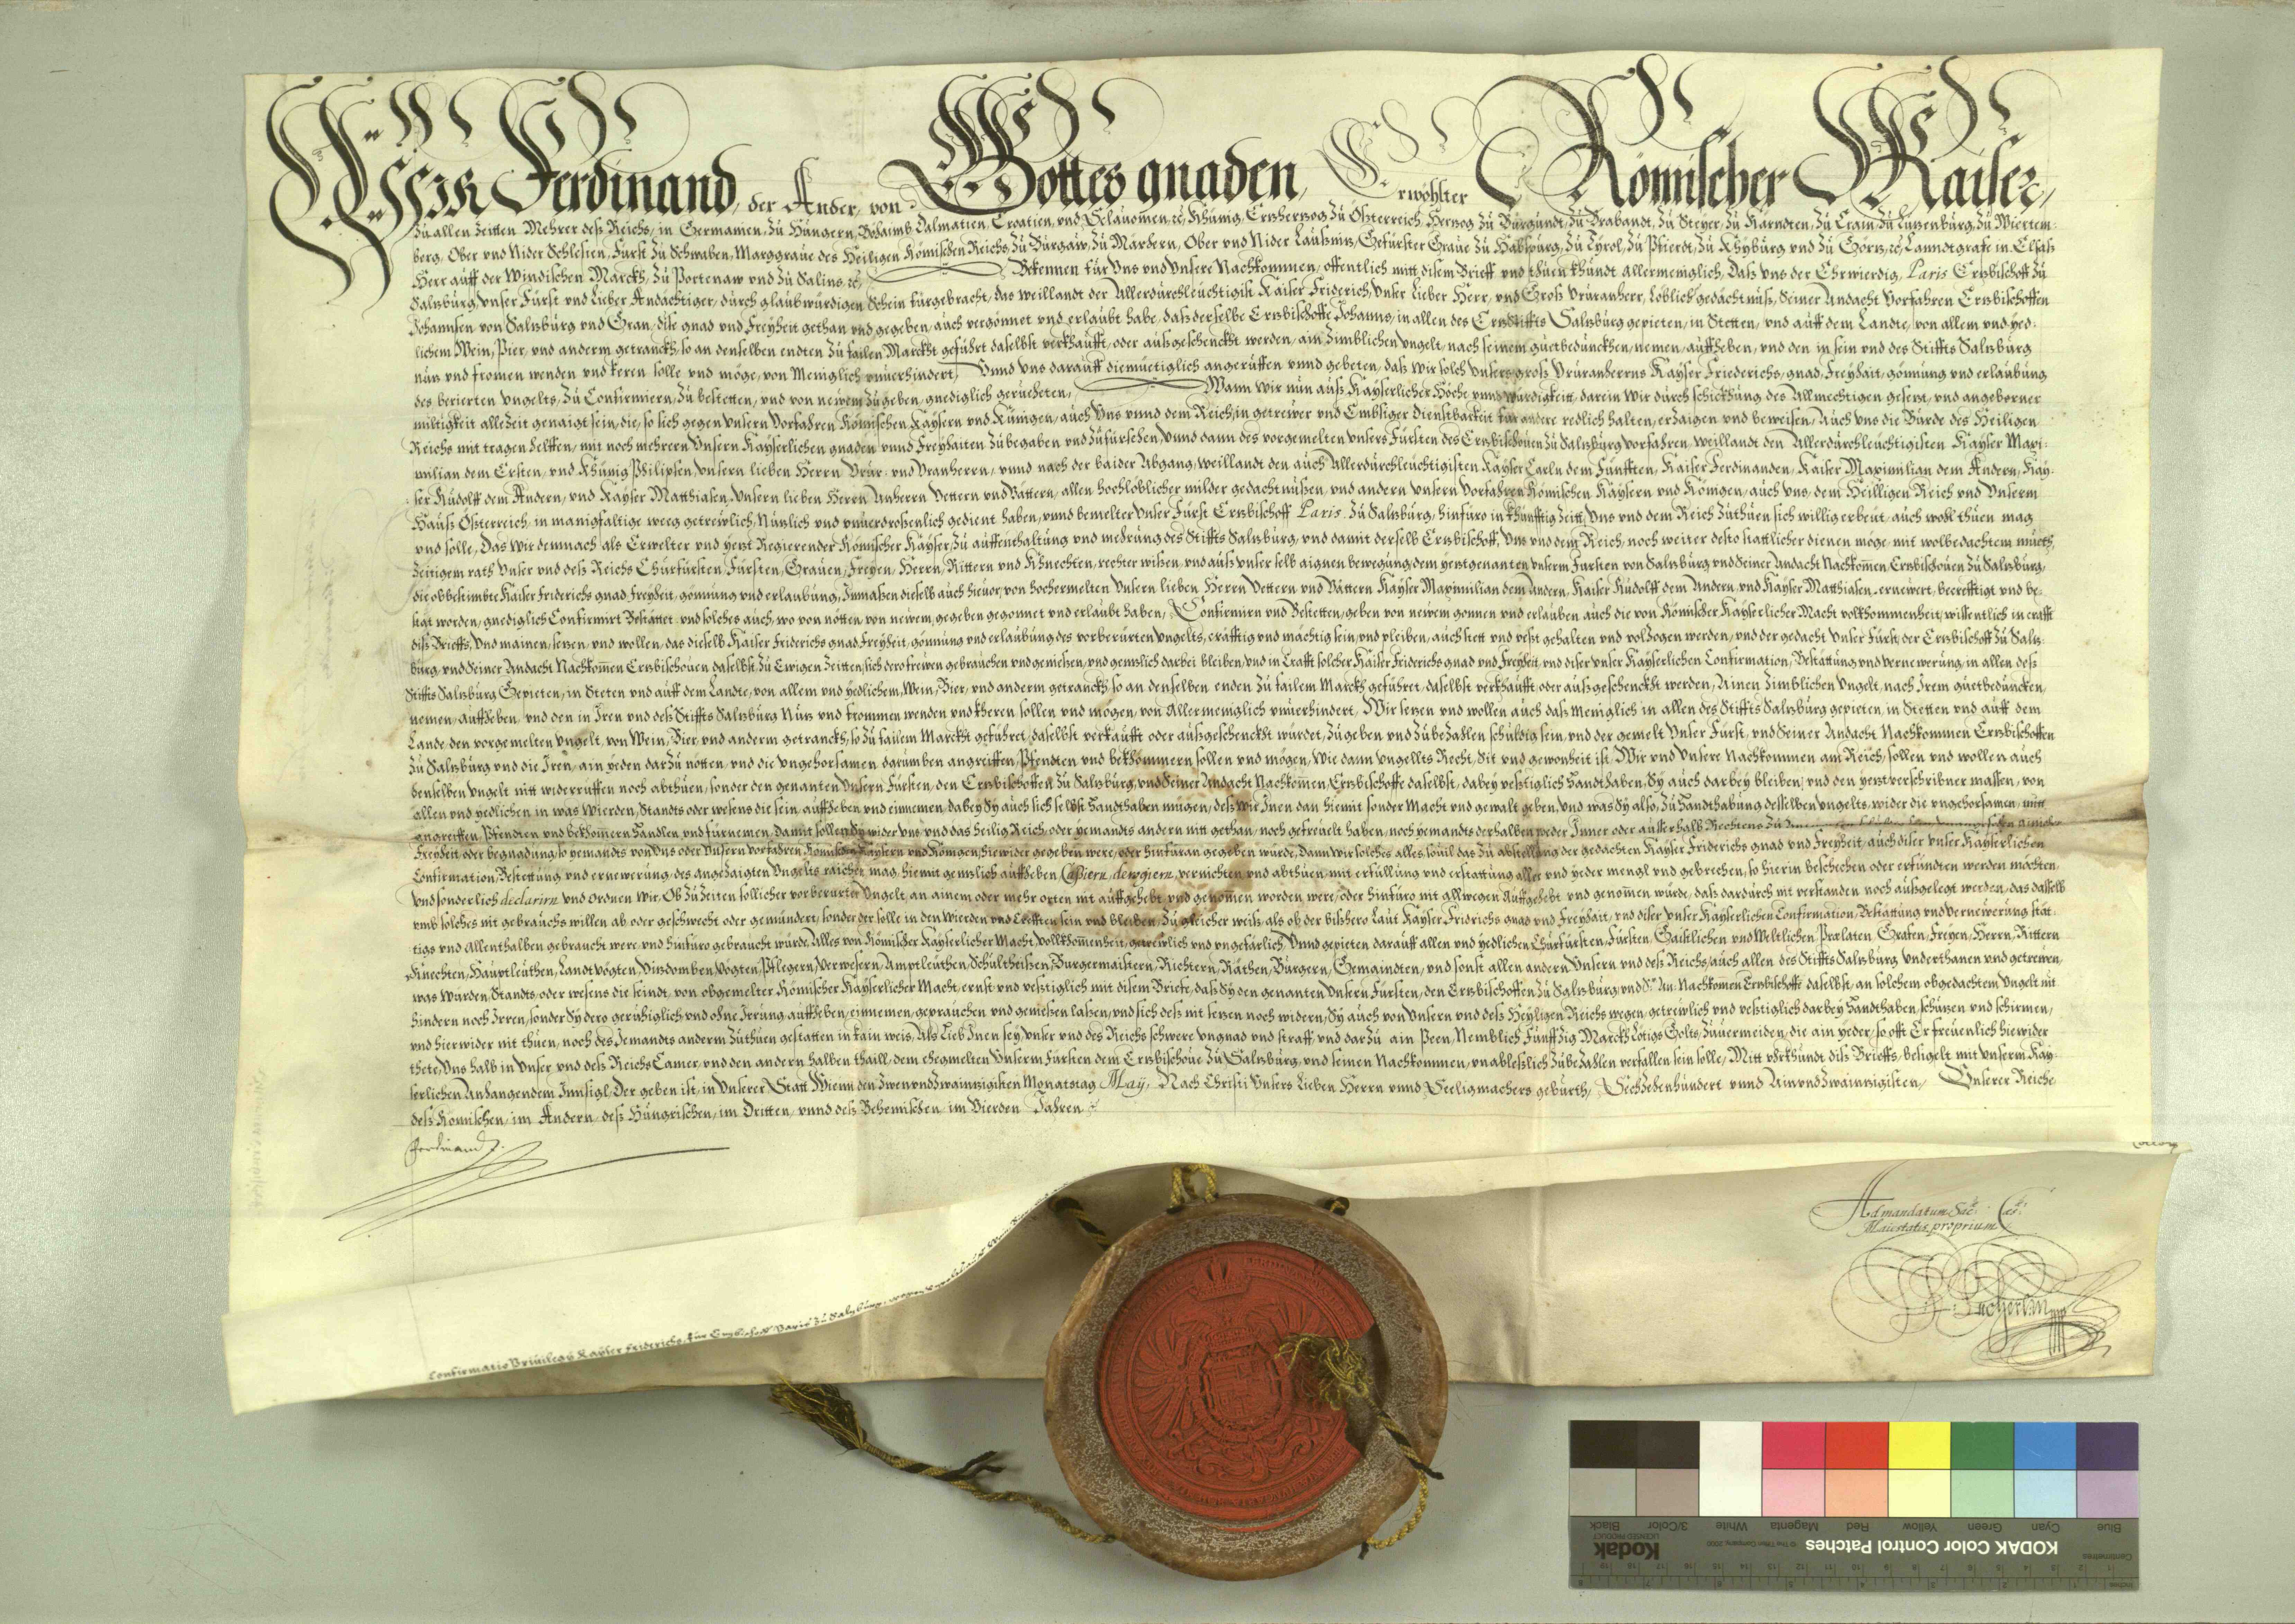 Wir Ferdinand, der Ander, von Gottes gnaden, Erwöhlter Römischer Kaiser,
Zu allen Zeitten Mehrer deß Reichs, in Germanien, Zu Hungern, Böhaimb, Dalmatien, Croatien, vnd Sclauonien, etc. Khünig, Ertzhertzog Zu Österreich, Hertzog Zu Burgundt, Zu Brabandt, Zu Steyer, Zu Kärndten, Zu Crain, Zu Lützenburg, Zu Wiertem-
berg, Ober vnd Nider Schlesien, Fürst Zu Schwaben, Marggraue des Heiligen Römischen Reichs, Zu Burgaw, Zu Märhern, Ober vnd Nider Laußnitz, Gefürster Graue Zu Habspurg, Zu Tyrol, Zu Pfierdt, Zu Khyburg vnd Zu Görtz, etc. Lanndtgrafe in Elsaß
Herr auff der Windischen Marckh, Zu Portenaw vnd Zu Salins, etc. Bekennen für Vns vnd Vnsere Nachkommen, offentlich mitt disem Brieff vnd thuen khundt Allermeniglich, Daß Vns der Ehrwierdig, Paris Ertzbischoff Zu
Saltzburg, Vnser Fürst vnd Lieber Andächtiger, durch glaubwürdigen Schein fürgebracht, das weillandt der Allerdurchleuchtigist Kaiser Friderich, Vnser Lieber Herr, vnd Groß Vruranherr, Löblich gedächtnuß, Seiner Andacht Vorfahren Ertzbischoffen
Johannsen von Saltzburg vnd Gran, dise gnad vnd Freyheit gethan vnd gegeben, auch vergönnet vnd erlaubt habe, daß derselbe Ertzbischoffe Johanns, in allen des Ertzstiffts Saltzburg gepieten, in Stetten, vnd auff dem Landte, von allem vnd yed-
lichem Wein, Pier, vnd anderm getranckh, so an denselben endten Zu failen Marckht geführt daselbst verkhaufft, oder außgeschenckt werden, ain Zimblichen Vngelt, nach seinem guetbedunckhen, nemen, auffheben, vnd den in sein vnd des Stiffts Saltzburg
nutz vnd fromen wenden vnd keren solle vnd möge, von Meniglich vnuerhindert, Vnnd Vns darauff diemüetiglich angeruffen vnnd gebeten, daß wir solch Vnsers groß Vruranherrns Kayser Friederichs, gnad, Freyhait, gönnung vnd erlaubung
des berierten Vngelts, Zu Confirmiern, Zu bestetten, vnd von newem Zu geben, gnediglich geruecheten, Wann Wir nun auß Kayserlicher Höche vnnd würdigkeitt, darein Wir durch schickhung des Allmechtigen gesetzt, vnd angeborner
miltigkeit allezeit genaigt sein, die, so sich gegen Vnsern Vorfahren Römischen Kaysern vnd Künigen, auch Vns vnnd dem Reich, in getrewer vnd Embsiger Dienstbarkeit für andere redlich halten, erzaigen vnd beweisen, Auch Vns die Bürde des Heiligen
Reichs mit tragen helffen, mit noch mehrern Vnsern Kayserlichen gnaden vnnd Freyhaiten Zubegaben vnd Zufürsehen, Vnnd dann des vorgemelten Vnsers Fürsten des Ertzbischouen Zu Saltzburg Vorfahren, weillandt den Allerdurchleuchtigisten Kayser Maxi-
milian dem Ersten, vnd Khünig Philipsen, Vnsern lieben Herrn Vrur- vnd Vranherrn, vnnd nach der baider Abgang, weillandt den auch Allerdurchleuchtigisten Kayser Carln dem Fünfften, Kaiser Ferdinanden, Kaiser Maximilian dem Andern, Kay-
ser Rudolff dem Andern, vnd Kayser Matthiasen, Vnsern lieben Herrn Anherrn Vettern vnd Vättern, allen hochlöblicher milder gedächtnußen, vnd andern Vnsern Vorfahren Römischen Kaysern vnd Königen, auch Vns, dem Heilligen Reich vnd Vnserm
Hauß Österreich, in manigfaltige weeg getrewlich, Nützlich vnd vnuerdrossenlich gedient haben, vnnd bemelter Vnser Fürst Ertzbischoff Paris, Zu Saltzburg, hinfüro in khünfftig Zeitt, Vns vnd dem Reich Zuthuen sich willig erbeut, auch wohl thuen mag
vnd solle, Das Wir demnach als Erwelter vnd yetzt Regierender Römischer Kayser, Zu auffenthaltung vnd mehrung des Stiffts Saltzburg, vnd damit derselb Ertzbischoff, Vns vnd dem Reich, noch weiter desto stattlicher dienen möge, mit wolbedachtem mueth,
Zeitigem rath Vnser vnd deß Reichs Churfürsten, Fürsten, Grauen, Freyen, Herrn, Rittern vnd Khnechten, rechter wißen, vnd auß Vnser selb aignen bewegung, dem yetztgenanten Vnserm Fürsten von Saltzburg vnd Seiner Andacht Nachkommen Ertzbischouen Zu Saltzburg,
die obbestimbte Kaiser Friderichs gnad, Freyheit, gönnung vnd erlaubung, Inmaßen dieselb auch hieuor, von hochermelten Vnsern lieben Herrn Vettern vnd Vättern Kayser Maximilian dem Andern, Kaiser Rudolff dem Andern, vnd Kayser Matthiasen, ernewert, becrefftigt vnd be-
stätigt worden, gnediglich Confirmirt Bestättet, vnd solches auch, wo von nötten, von newem, gegeben gegonnet vnd erlaubt haben, Confirmirn vnd Bestetten, geben von newem gonnen vnd erlauben auch die von Römischer Kayserlicher Macht volkhommenheit, wissentlich in crafft
diß Brieffs, Vnd mainen, setzen, vnd wollen, das dieselb Kaiser Friderichs gnad Freyheit, gönnung vnd erlaubung des vorberürten Vngelts, crafftig vnd mächtig sein, vnd pleiben, auch stett vnd vesst gehalten vnd volzogen werden, vnd der gedacht Vnser Fürst, der Ertzbischoff Zu Saltz-
burg, vnd Seiner Andacht Nachkommen Ertzbischouen daselbst, Zu Ewigen Zeitten, sich dero freuwen gebrauchen vnd geniessen, vnd gentzlich darbei bleiben, vnd in Crafft solcher Kaiser Friderichs gnad vnd Freyheit, vnd diser Vnser Kayserlichen Confirmation, Bestättung vnd vernewerung, in allen deß
Stiffts Saltzburg Gepieten, in Steten vnd auff dem Landte, von allem vnd yedlichem, Wein, Bier, vnd anderm getranckh, so an denselben enden Zu failem Marckh geführet, daselbst verkhaufft oder außgeschenckht werden, Ainen Zimblichen Vngelt, nach Irem guetbeduncken,
nemen, auffheben, vnd den in Iren vnd deß Stiffts Saltzburg Nutz vnd frommen wenden vnd kheren sollen vnd mögen, von Allermeniglich vnuerhindert, Wir setzen vnd wollen auch daß Meniglich in allen des Stiffts Saltzburg gepieten, in Stetten vnd auff dem
Lande, den vorgemelten Vngelt, von Wein, Bier, vnd anderm getranckh, so Zu failem Marckht geführet, daselbst verkaufft oder außgeschenckht würdet, Zu geben vnd Zubezahlen schuldig sein, vnd der gemelt Vnser Fürst, vnd Seiner Andacht Nachkommen Ertzbischoffen
Zu Saltzburg vnd die Iren, ain yeden darzu nötten, vnd die Vngehorsamen darumben angreiffen, Pfendten vnd bekhommern sollen vnd mögen, Wie dann Vngellts Recht, Sit vnd gewonheit ist, Wir vnd Vnsere Nachkommen am Reich, sollen vnd wollen auch
denselben Vngelt nitt widerruffen noch abthuen, sonder den genanten Vnsern Fürsten, den Ertzbischoffen Zu Saltzburg, vnd Seiner Andacht Nachkommen, Ertzbischoffe daselbst, dabey vesstiglich Handthaben, Sy auch darbey bleiben, vnd den yetzt verschribner massen, von
allen vnd yedlichen in was Wierden, Standts oder wesens die sein, auffheben vnd einnemen, dabey Sy auch sich selbst Handthaben mügen, deß Wir Inen dan hiemit sonder Macht vnd gewalt geben, Vnd was Sy also, Zu Handthabung desselben Vngelts, wider die vngehorsamen, mitt
angreiffen, Pfendten vnd bekhommern Handlen vnd fürnemen, Damit sollen Sy wider Vns vnd das heilig Reich, oder yemandts andern nitt gethan, noch gefreuelt haben, noch yemandts derhalben weder Inner oder ausserhalb Rechtens Zu
Freyheit oder begnadung, so yemandts von Vns oder Vnsern Vorfahren Römischen Kaysern vnd Königen, hiewider gegeben were, oder hinfüran gegeben würde, Dann wir solches alles, souil das Zu abstellung der gedachten Kayser Friderichs gnad vnd Freyheit, auch diser Vnser Kayserlichen
Confirmation, Bestettung vnd ernewerung, des angezaigten Vngelts raichen mag, hiemit gentzlich auffheben, Cassiern, derogiern, vernichten vnd abthuen, mit erfüllung vnd erstattung aller vnd yeder mengl vnd gebrechen, so hierin beschechen oder erfunden werden möchten,
Vnd sonderlich declarirn vnd Ordnen Wir, Ob Zu Zeiten sollicher vorberurter Vngelt, an ainem oder mehr orten nit auffgehebt, vnd genommen worden were, oder hinfüro nit allwegen Auffgehebt vnd genommen würde, daß dardurch nit verstanden noch außgelegt werden, das dasselb
vmb solches nit gebrauchs willen ab oder geschwecht oder gemündert, sonder der solle in den Wierden vnd Crefften sein vnd bleiben, Zu gleicher weiß, als ob der bißhero Laut Kayser Fridrichs gnad vnd Freyhait, vnd diser Vnser Kayserlichen Confirmation, Bestattung vnd Vernewerung stät-
tigs vnd Allenthalben gebraucht were vnd hinfüro gebraucht würde, Alles von Römischer Kayserlicher Macht, vollkhommenheit, getrewlich vnd vngefärlich, Vnnd gepieten darauff allen vnd yedlichen Churfürsten, Fürsten, Gaistlichen vnd Weltlichen, Prelaten, Grafen, Freyen, Herrn, Rittern
Knechten, Hauptleuthen, Landtvögten, Vitzdomben, Vögten, Pflegern, Verwesern, Amptleuthen, Schultheissen, Burgermaistern, Richtern, Räthen, Burgern, Gemaindten, vnd sonst allen andern Vnsern vnd deß Reichs, auch allen des Stiffts Saltzburg Vnderthanen vnd getrewen,
was würden, Standts, oder wesens die seindt, von obgemelter Römischer Kayserlicher Macht, ernst vnd vesstiglich mit disem Briefe, daß Sy den genanten Vnsern Fürsten, den Ertzbischoffen Zu Saltzburg, vnd Sr. An: Nachkomen Ertzbischoffe daselbst, an solchem obgedachtem Vngelt nit
hindern noch Irren, sonder Sy dero geruhiglich vnd ohne Irrung auffheben, einnemen, geprauchen vnd geniessen lassen, vnd sich deß nit setzen noch widern, Sy auch von Vnsern vnd deß Heyligen Reichs wegen, getrewlich vnd vesstiglich darbey Handthaben, schützen vnd schirmen,
vnd hierwider nit thuen, noch des Jemandts anderm Zuthuen gestatten in kain weis, Als Lieb Inen sey, Vnser vnd des Reichs schwere vngnad vnd straff, vnd darzu ain Peen, Nemblich Fünffzig Marckh Lötigs Golts, Zuuermeiden, die ain yeder, so offt Er freuenlich hiewider
thete, Vns halb in Vnser vnd deß Reichs Camer, vnd den andern halben thaill, dem ehegmelten Vnserm Fürsten dem Ertzbischoue Zu Saltzburg, vnd seinen Nachkommen, vnableßlich Zubezahlen verfallen sein solle, Mitt vhrkhundt diß Brieffs, besigelt mit Vnserm Kay-
serlichen Anhangendem Innsigl, Der geben ist, in Vnserer Statt Wienn den Zwenvndzwaintzigisten Monatstag May, Nach Christi Vnsers Lieben Herrn vnnd Seeligmachers geburth, Sechzehenhundert vnnd Ainvndzwaintzigisten, Vnserer Reiche
deß Römischen, im Andern, deß Hungrischen, im Dritten, vnnd deß Behemischen, im Vierden Jahren
Ferdinand
Ad mandatum Sac: Caes:
Maiestatis proprium
Confirmatio Priuilegÿ Kayser Friderichs, für Ertzbischof Paris Zu Saltzburg, wegen
KODAK Color Control Patches
Kodak
LICENSED PRODUCT
© The Tiffen Company, 2000
Blue Cyan Green Yellow Red Magenta White 3/Color Black
Centimetres
Inches